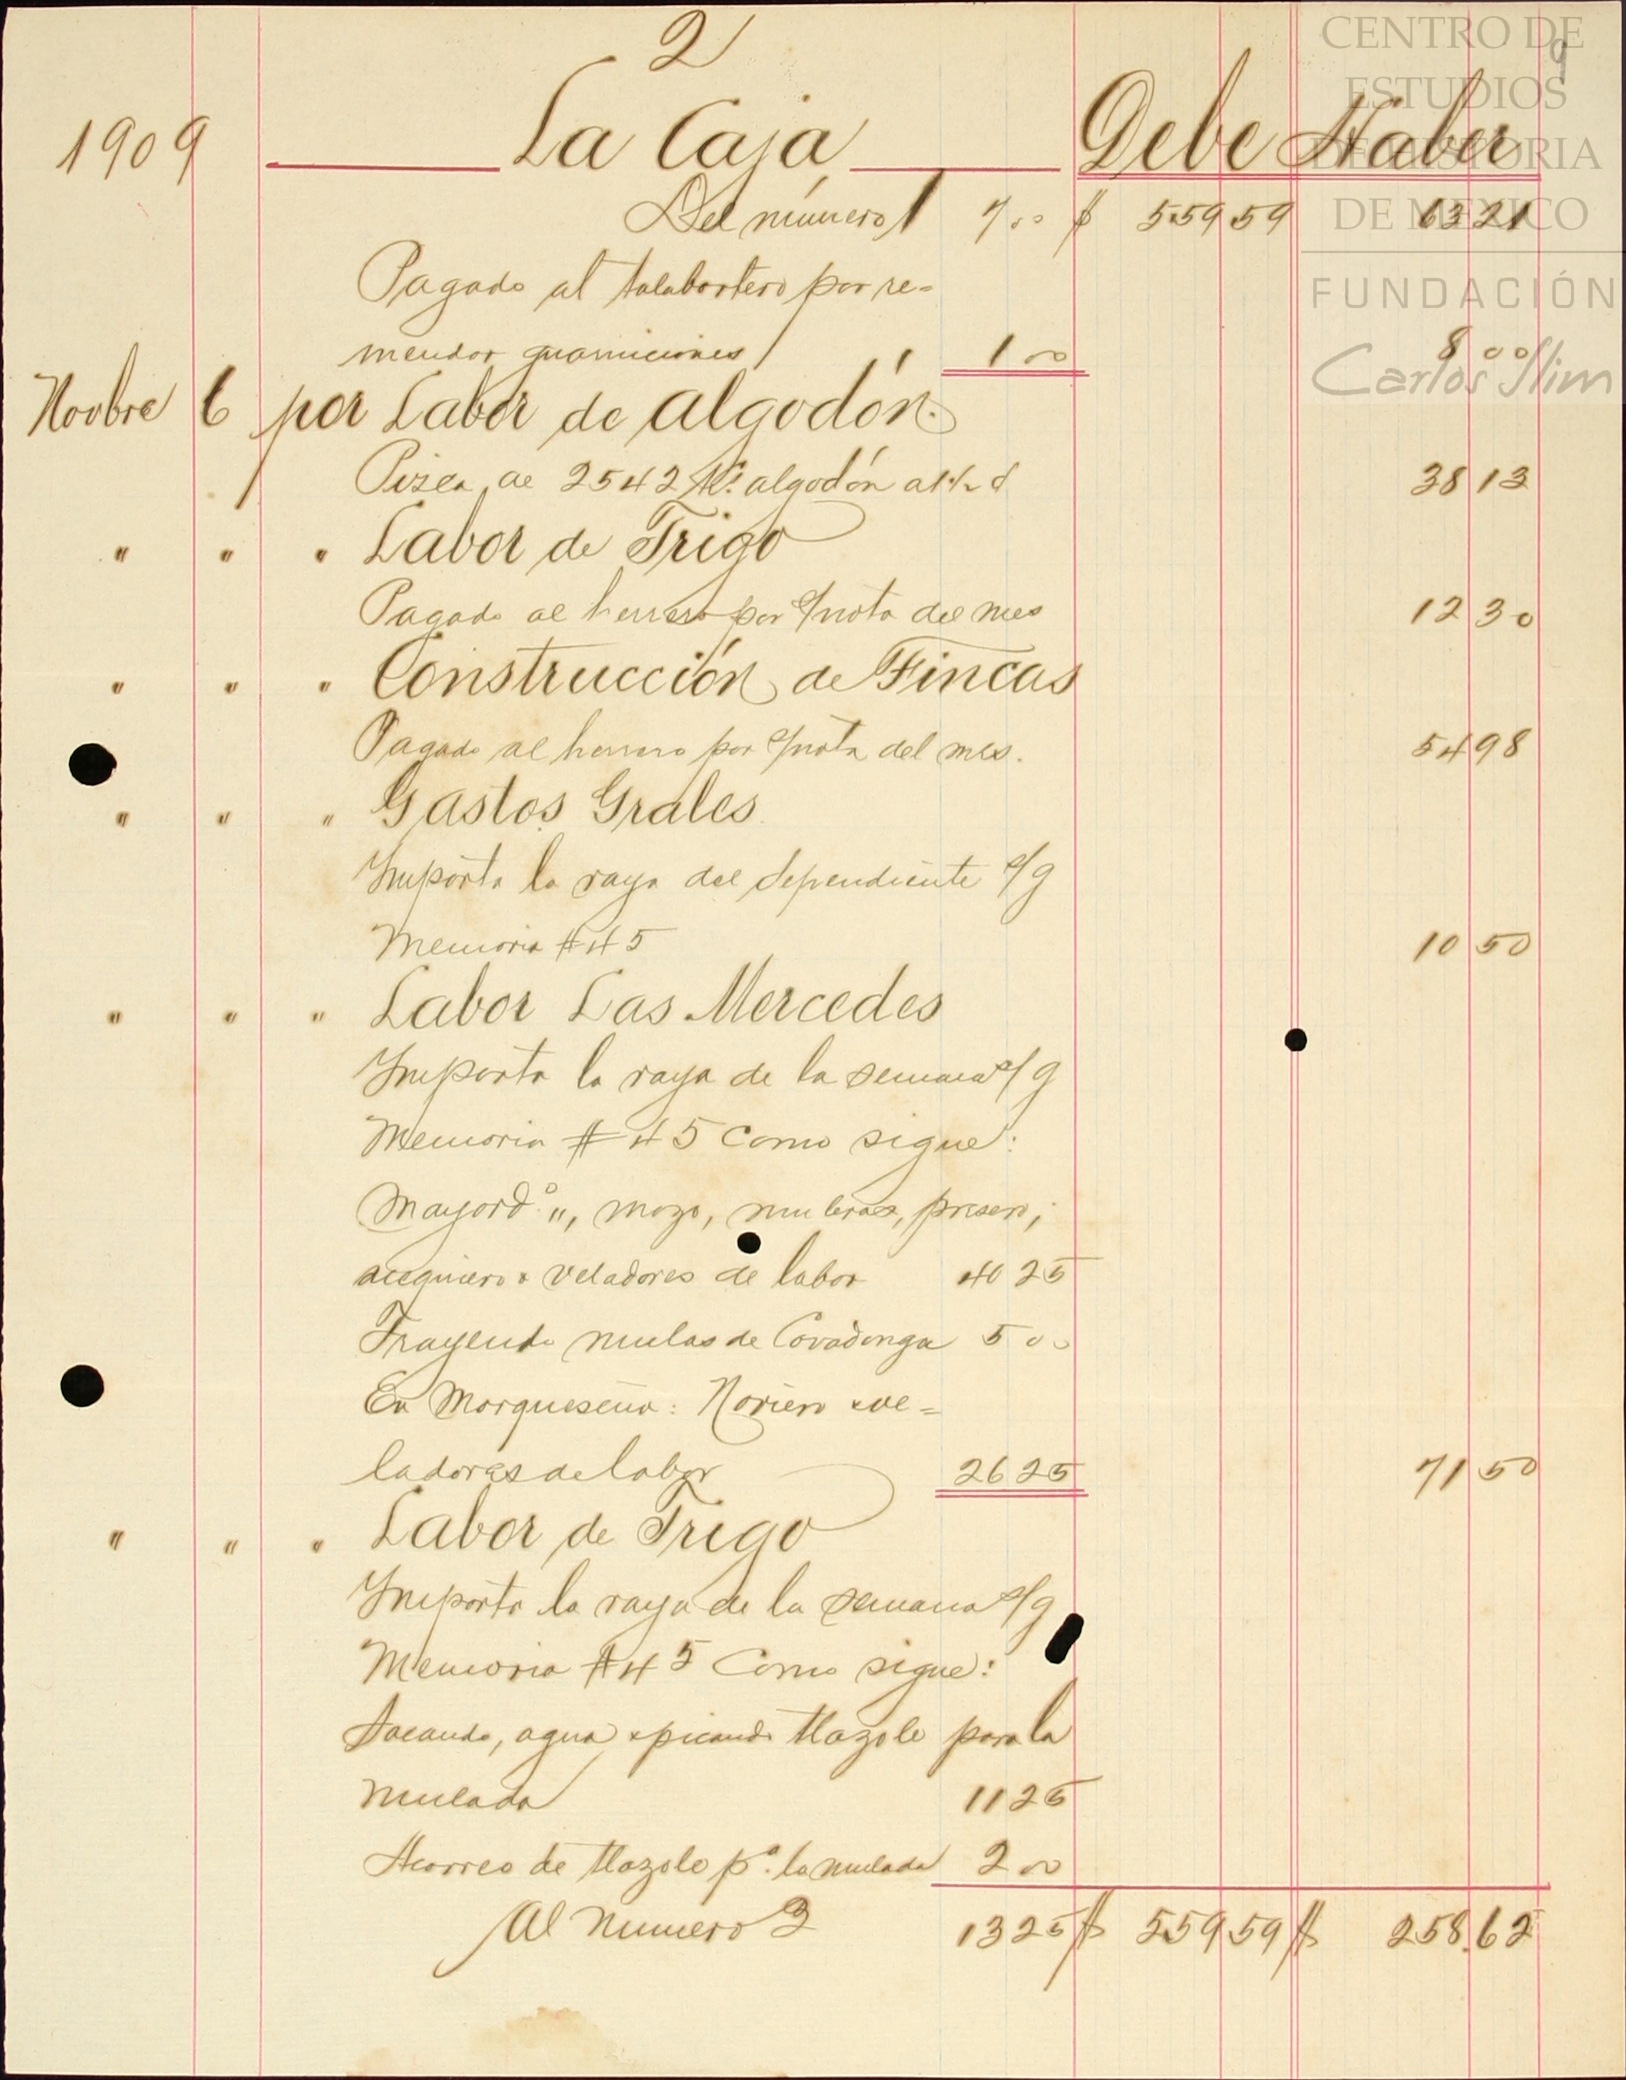 2
9
CENTRO DE
ESTUDIOS
DE HISTORIA
DE MEXICO
FUNDACIÓN
Carlos Slim
1909 La Caja Debe Haber
Del número 1 7 00 $ 559 59 63 21
Pagado al talabartero por re=
mendar guarniciones 1 00 8 00
Novbre 6 por Labor de algodón.
Pizca de 2542 K.s algodón a 1 1/2 ¢ 38 13
" " " Labor de Trigo
Pagado al herrero por s/nota del mes 12 30
" " " Construcción de Fincas
Pagado al herrero por s/nota del mes. 54 98
" " " Gastos Grales.
Importa la raya del dependiente s/g
Memoria # 45 10 50
" " " Labor Las Mercedes
Importa la raya de la semana s/g
Memoria # 45 como sigue:
Mayord.º ", mozo, muleros, presero,
acequiero & veladores de labor 40 25
Trayendo mulas de Covadonga 5 00
En Marqueseña: Noriero & ve=
ladores de labor 26 25 71 50
" " " Labor de Trigo
Importa la raya de la semana s/g
Memoria # 45 como sigue:
Sacando, agua & picando tlazole para la
mulada 11 25
Acarreo de tlazole p.a la mulada 2 00
Al numero 3 13 25 $ 559 59 $ 258.62